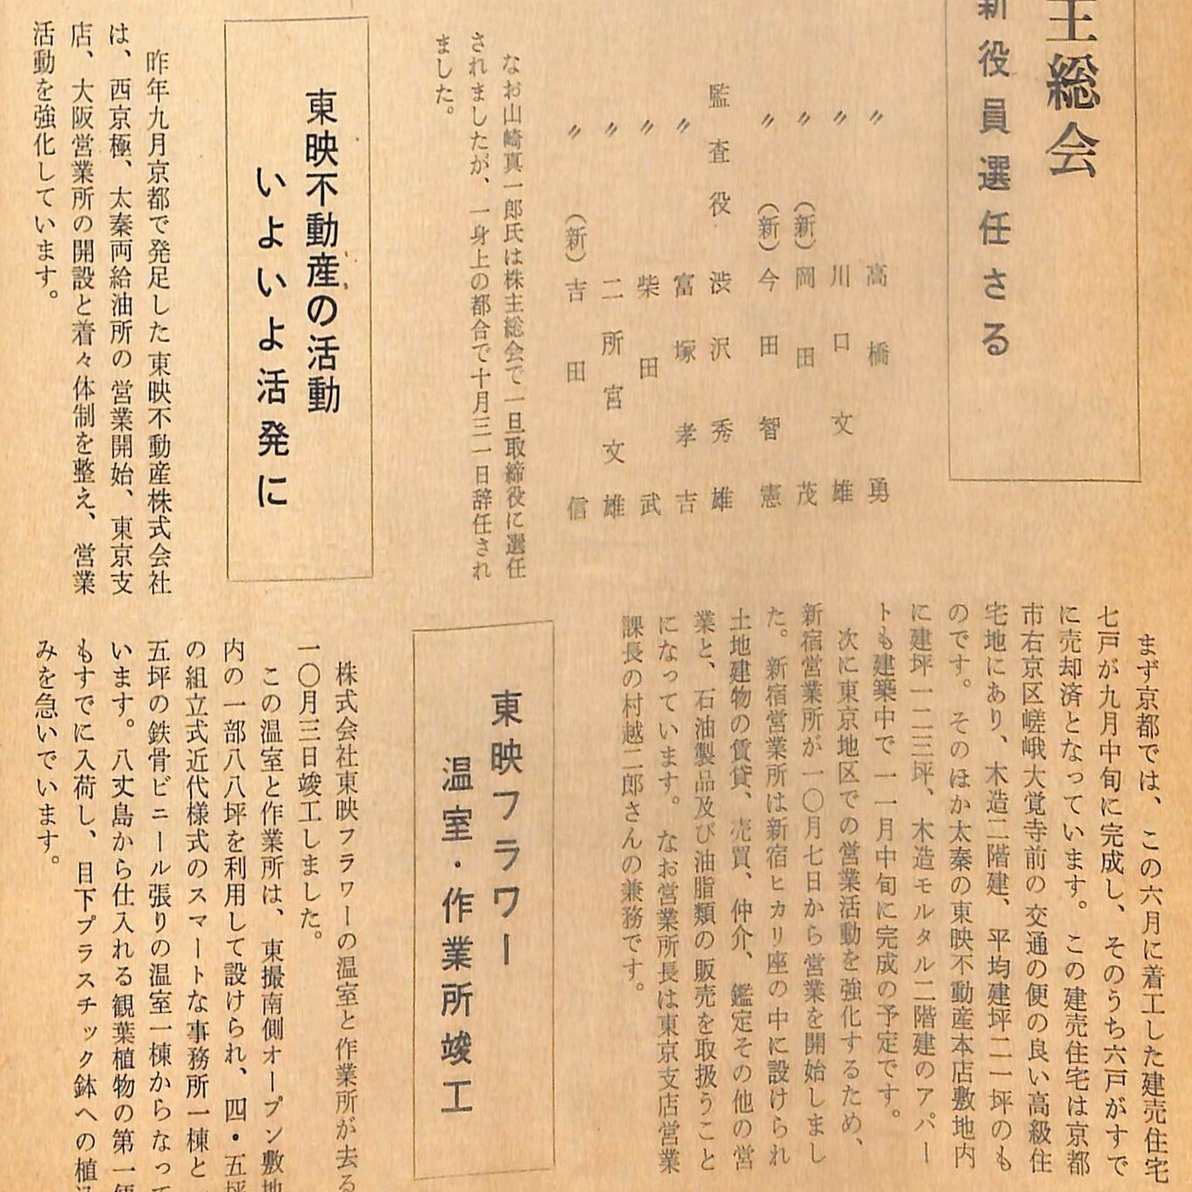 主総会
新役員選任さる
〃 高橋勇
〃 川口文雄
〃 (新)岡田茂
〃 (新)今田智憲
監査役 渋沢秀雄
〃 富塚孝吉
〃 柴田武
〃 二所宮文雄
〃 (新)吉田信
なお山崎真一郎氏は株主総会で一旦取締役に選任
されましたが、一身上の都合で十月三一日辞任され
ました。
東映不動産の活動
いよいよ活発に
昨年九月京都で発足した東映不動産株式会社
は、西京極、太秦両給油所の営業開始、東京支
店、大阪営業所の開設と着々体制を整え、営業
活動を強化しています。
まず京都では、この六月に着工した建売住宅
七戸が九月中旬に完成し、そのうち六戸がすで
に売却済となっています。この建売住宅は京都
市右京区嵯峨大覚寺前の交通の便の良い高級住
宅地にあり、木造二階建、平均建坪二一坪のも
のです。そのほか太秦の東映不動産本店敷地内
に建坪一二三坪、木造モルタル二階建のアパー
トも建築中で一一月中旬に完成の予定です。
次に東京地区での営業活動を強化するため、
新宿営業所が一〇月七日から営業を開始しまし
た。新宿営業所は新宿ヒカリ座の中に設けられ
土地建物の賃貸、売買、仲介、鑑定その他の営
業と、石油製品及び油脂類の販売を取扱うこと
になっています。なお営業所長は東京支店営業
課長の村越二郎さんの兼務です。
東映フラワー
温室・作業所竣工
株式会社東映フラワーの温室と作業所が去る
一〇月三日竣工しました。
この温室と作業所は、東撮南側オープン敷地
内の一部八八坪を利用して設けられ、四・五坪
の組立式近代様式のスマートな事務所一棟と
五坪の鉄骨ビニール張りの温室一棟からなって
います。八丈島から仕入れる観葉植物の第一便
もすでに入荷し、目下プラスチック鉢への植込
みを急いでいます。